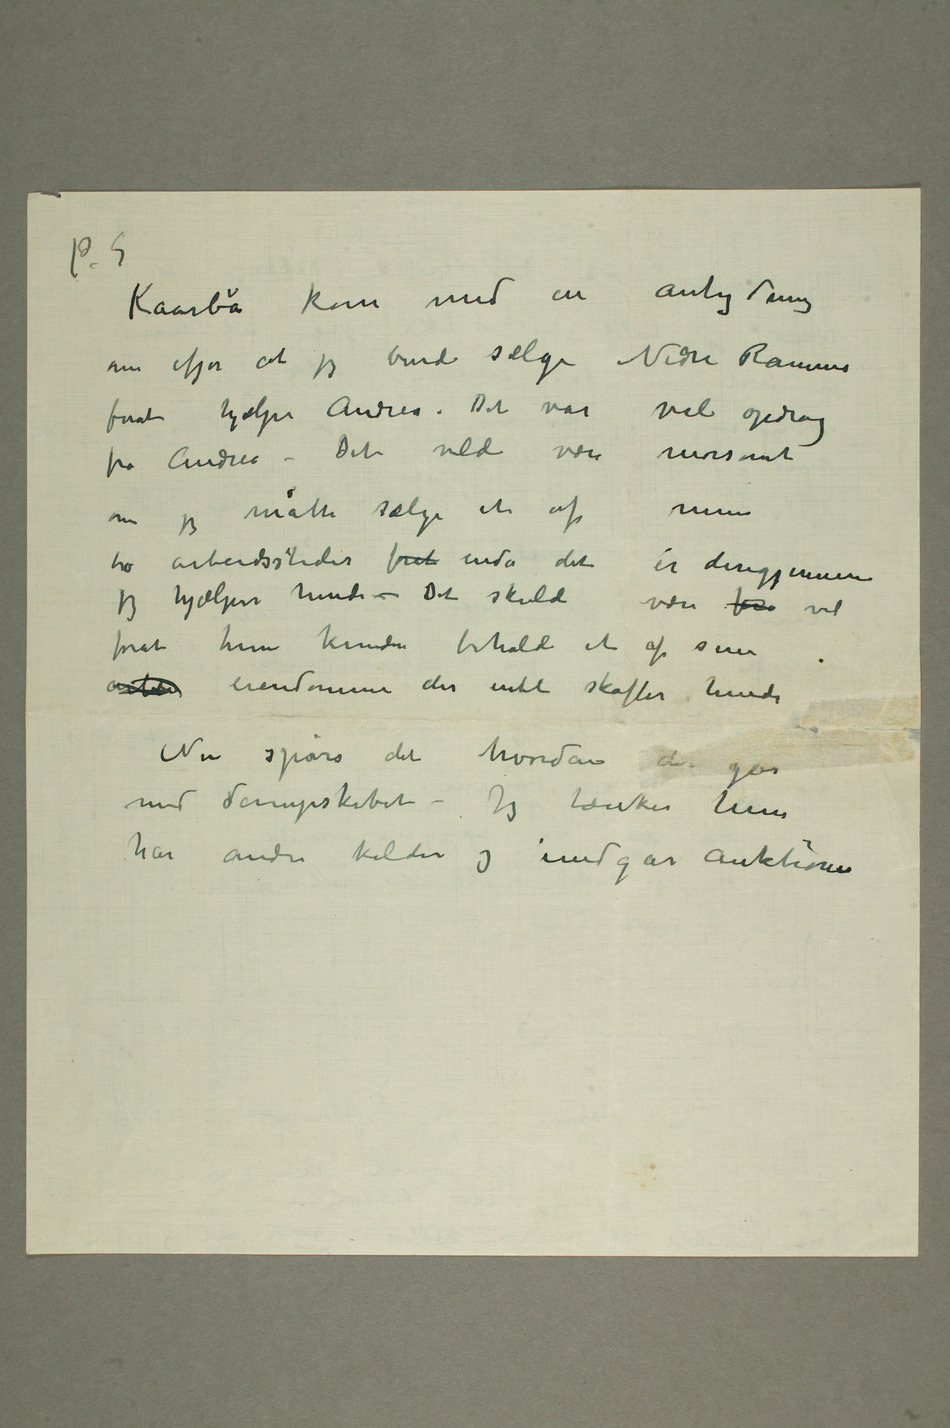 P.S
Kaarbø kom med en antydning
om ifjor at jeg burde sælge Nedre Ramme
forat hjælpe Andrea. Det var vel opdrag
fra Andrea – Det vilde være morsomt
om jeg måtte sælge et af mine
to arbeidsstæder foret enda det er derigjennem
jeg hjælper hende – Det skulde være for vel
forat hun kunde beholde et af sine
eiendomme der intet skaffer hende
Nu spørs det hvordan det går
med dampskibet – Jeg tænker hun
har andre kilder og undgår auktioner